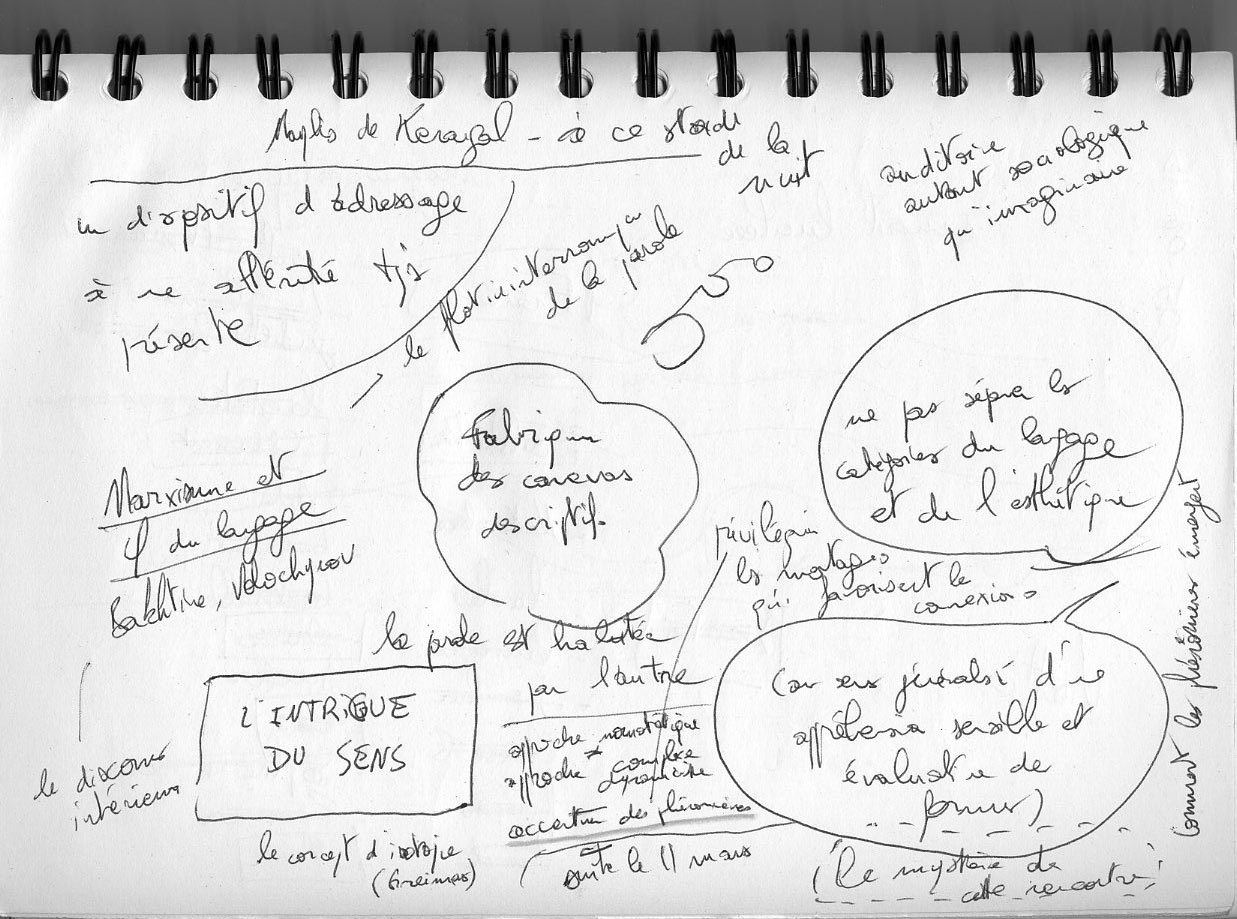 Maylis de Kerangal - à ce stade
de la
nuit
auditoire
autant sociologique
qu'imaginaire
un dispositif d'adressage
à une altérité tjs
présente
le flot ininterrompu
de la parole
Fabrique
des canevas
descriptifs
ne pas séparer les
catégories du langage
et de l'esthétique
Marxisme et
φ du langage
Bakhtine, Volochynov
privilégier
les montages
qui favorisent le
connexions
la parole est habitée
par l'autre
L'INTRIGUE
DU SENS
approche
approche complexe
dynamique
des phénomènes
suite le 11 mars
(au sens général d'une
appréhension sensible et
évaluative de
formes)
le discours
intérieur
le concept d'isotopie
(Greimas)
(le mystère de
cette rencontre)
comment les phénomènes émergent